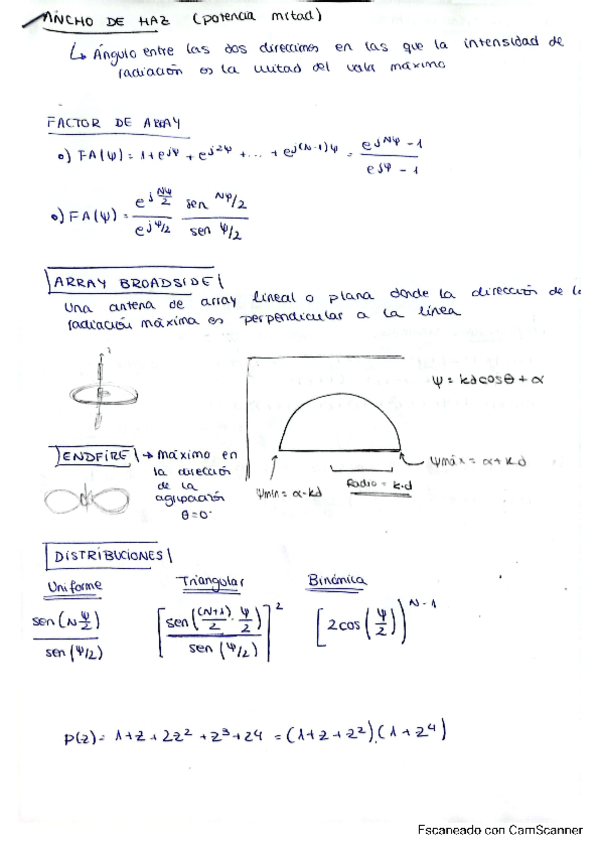 ANCHO DE HAZ (potencia mitad)
↳ Ángulo entre las dos direcciones en las que la intensidad de
radiación es la mitad del valor máximo
FACTOR DE ARRAY
o) FA(ψ) = 1 + e^{jψ} + e^{j2ψ} + ... + e^{j(N-1)ψ} = (e^{jNψ} - 1) / (e^{jψ} - 1)
o) FA(ψ) = (e^{jNψ/2} / e^{jψ/2}) (sen Nψ/2 / sen ψ/2)
ARRAY BROADSIDE
Una antena de array lineal o plana donde la dirección de l
radiación máxima es perpendicular a la línea
ψ = kdcosθ + α
ψmáx = α + kd
Radio = k·d
ψmin = α - kd
ENDFIRE → máximo en
la dirección
de la
agrupación
θ = 0°
DISTRIBUCIONES
Uniforme Triangular Binómica
sen(N ψ/2) / sen(ψ/2) [sen((N+1)/2 · ψ/2) / sen(ψ/2)]^2 [2cos(ψ/2)]^{N-1}
P(z) = 1 + z + 2z^2 + z^3 + z4 = (1 + z + z^2).(1 + z^4)
Escaneado con CamScanner